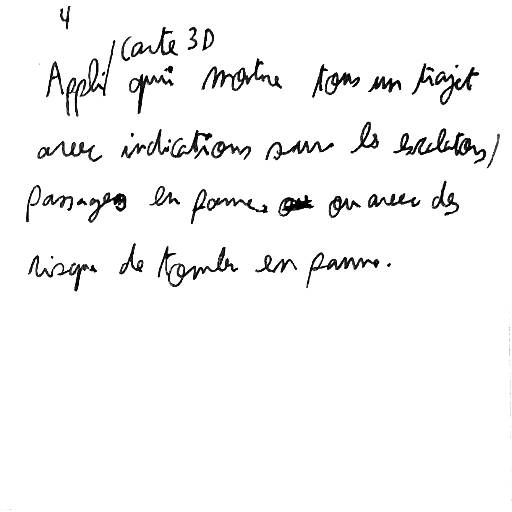 4
Appli/Carte 3D
qui montre tous un trajet
avec indications sur les escalators/
passages en panne ou avec des
risque de tomber en panne.